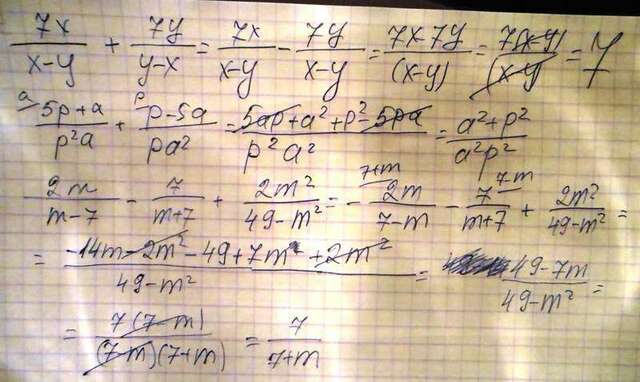 7x/(x-y) + 7y/(y-x) = 7x/(x-y) - 7y/(x-y) = 7x-7y/(x-y) = 7(x-y)/(x-y) = 7
a 5p+a/p²a + p p-5a/pa² = 5ap+a²+p²-5pa/p²a² = a²+p²/a²p²
2m/(m-7) - 7/(m+7) + 2m²/(49-m²) = - 7+m 2m/(7-m) - 7 7-m/(m+7) + 2m²/(49-m²) =
= -14m-2m²-49+7m+2m²/(49-m²) = 49-7m/(49-m²) =
= 7(7-m)/(7-m)(7+m) = 7/(7+m)